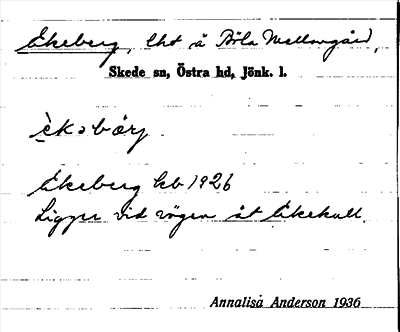 Ekeberg, lht å Böla Mellangård,
Skede sn, Östra hd, Jönk. l.
èkəbärj.
Ekeberg kb 1926
Ligger vid vägen åt Ekekull.
Annalisa Anderson 1936